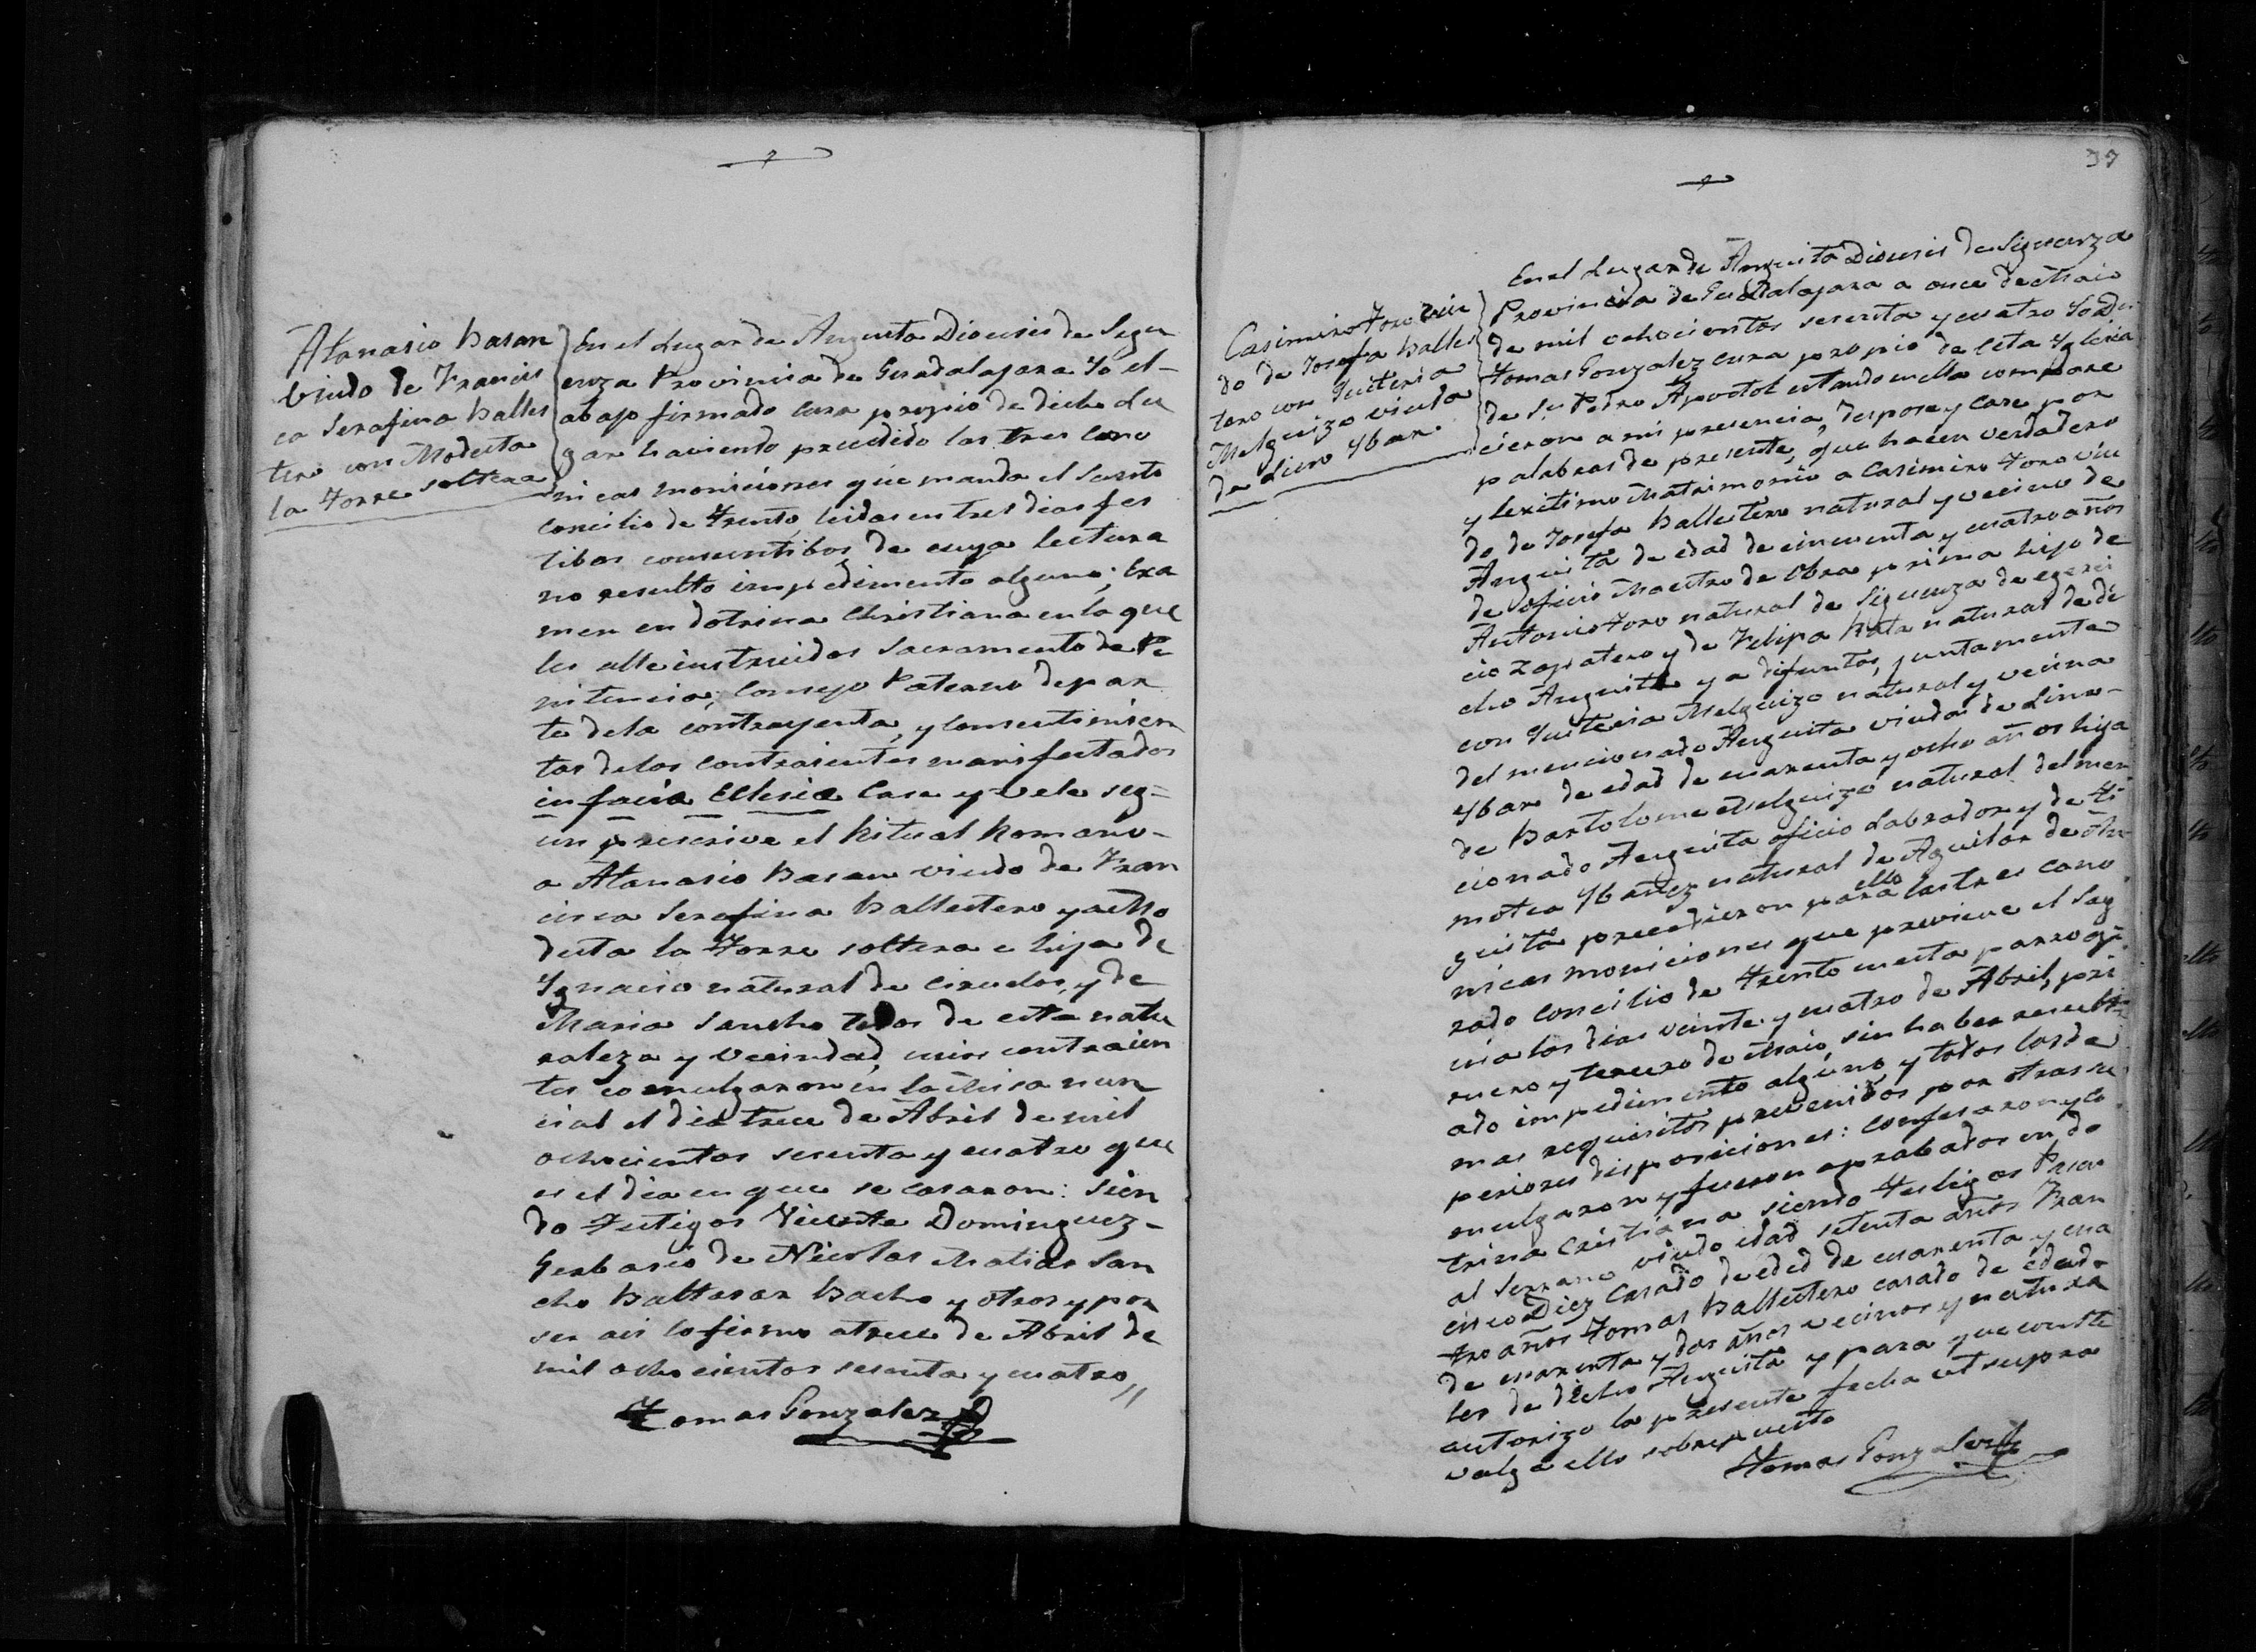 Atanasio Basan
viudo de Francis
ca Serafina Balles
tero con Modesta
la Torre soltera
En el Lugar de Anguita Diocesis de Sigu
enza Provincia de Guadalajara Yo el
abajo firmado cura propio de dicho Lu
gar haviendo precedido las tres cano
nicas moniciones que manda el Santo
Concilio de Trento, leidas en tres dias fes
tibos consecutibos de cuya lectura
no resulto impedimento alguno; Exa
men en dotrina Christiana en la que
les alle instruidos Sacramento de Pe
nitencia; Consejo Paterno de par
te dela contrayenta, y consentimien
tos delos contraientes manifestados
in facie Eclesie Case y vele seg-
un prescrive el Ritual Romano-
a Atanasio Basan viudo de Fran
cisca Serafina Ballestero y a Mo
desta la Torre soltera e hija de
Ygnacio natural de Ciruelos, y de
Maria Sancho todos de esta natu
raleza y Vecindad, cuios contraien
tes comulgaron en la Misa nun
cial el dia trece de Abril de mil
ochocientos sesenta y cuatro que
es el dia en que se casaron: Sien
do Testigos Vicente Dominguez-
Gerbasio de Nicolas Matias San
cho Baltasar Bacho y otros y por
ser asi lo firmo a trece de Abril de
mil ochocientos sesenta y cuatro //
Tomas Gonzalez
37
Casimiro Toro viu
do de Josefa Balles
tero con Quiteria
Melguizo viuda
de Lino Ybar.
En el Lugar de Anguita Diocesis de Siguenza
Provincia de Guadalajara a once de Maio
de mil ochocientos sesenta y cuatro Yo Dn
Tomas Gonzalez cura propio de esta Yglesia
de Sn Pedro Apostol estando en ella compare
cieron a mi presencia, despose y case por
palabras de presente, que hacen verdadero
y lexitimo Matrimonio a Casimiro Toro viu
do de Josefa Ballestero natural y vecino de
Anguita de edad de cincuenta y cuatro años
de oficio Maestro de Obra prima hijo de
Antonio Toro natural de Siguenza de egerci
cio Zapatero y de Felipa Rata natural de di
cho Anguita ya difuntos, juntamente
con Quiteria Melguizo natural y vecina
del mencionado Anguita viuda de Lino-
Ybar de edad de cuarenta y ocho años hija
de Bartolome Melguizo natural del men
cionado Anguita oficio Labrador y de Ti
motea Ybañez natural de Aguilar de An
guita precedieron para ello las tres cano
nicas moniciones que previene el Sag
rado Concilio de Trento en esta parroqui
cia los dias veinte y cuatro de Abril, pri
mero y tercero de Maio, sin haber result
ado impedimento alguno, y todos los de
mas requisitos prevenidos por otras su
periores disposiciones: confesaron y co
mulgaron y fueron aprobados en do
trina Cristiana siendo testigos Pascu
al Serrano viudo edad setenta años Fran
cisco Diez Casado de edad de cuarenta y cua
tro años Tomas Ballestero casado de edad
de cuarenta y dos años vecinos y natura
les de dicho Anguita y para que conste
autorizo la presente fecha ut supra
valga ello sobrepuesto
Tomas Gonzalez